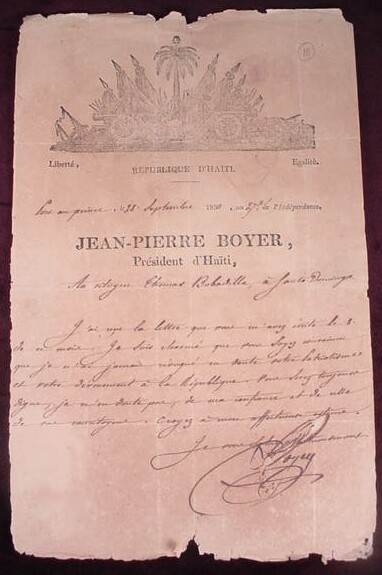 Liberté, Egalité.
REPUBLIQUE D'HAITI.
Port au prince le Septembre 1830 an 27e. de l'Indépendance.
JEAN-PIERRE BOYER,
Président d'Haïti,
Au citoyen Thomas Bobadilla, à Santo Domingo
J'ai reçu la lettre que vous m'avez écrite le 8
de ce mois. Je suis charmé que vous soyez
que je n'ai jamais révoqué en doute votre patriotisme
et votre dévouement à la République. Vous serez toujours
digne, je n'en doute pas, de ma confiance et de celle
de vos concitoyens. Croyez à mon affectueuse estime.
Je vous
Boyer